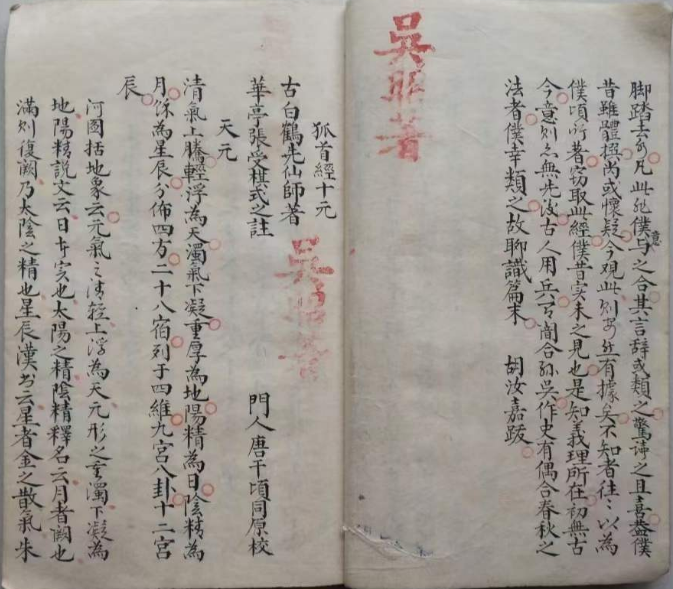 脚踏去尔凡此既僕与之合其言辞或類之驚諦之且喜盖僕
意
昔雖體極尚或懷疑今观此则安然有據矣不知者往〻以為
僕頃所著窃取此經僕昔实未之見也是知義理所在初無古
今意则亦無先汝古人用兵有闇合孫吳作史有偶合春秋之
法者僕幸類之故聊識篇末　胡汝嘉跋
吳照著
狐首經十元
古白鶴先仙師著
華亭張受祺式之註　門人唐千頃同原校
天元
清氣上騰輕浮為天濁氣下凝重厚為地陽精為日陰精為
月餘為星辰分佈四方二十八宿列于四維九宮八卦十二宮
辰
河圖括地象云元氣之清輕上浮為天元形之重濁下凝為
地陽精説文云日寔也太陽之精陰精釋名云月者阙也
滿则復阙乃太陰之精也星辰漢書云星者金之散氣朱
吳照著